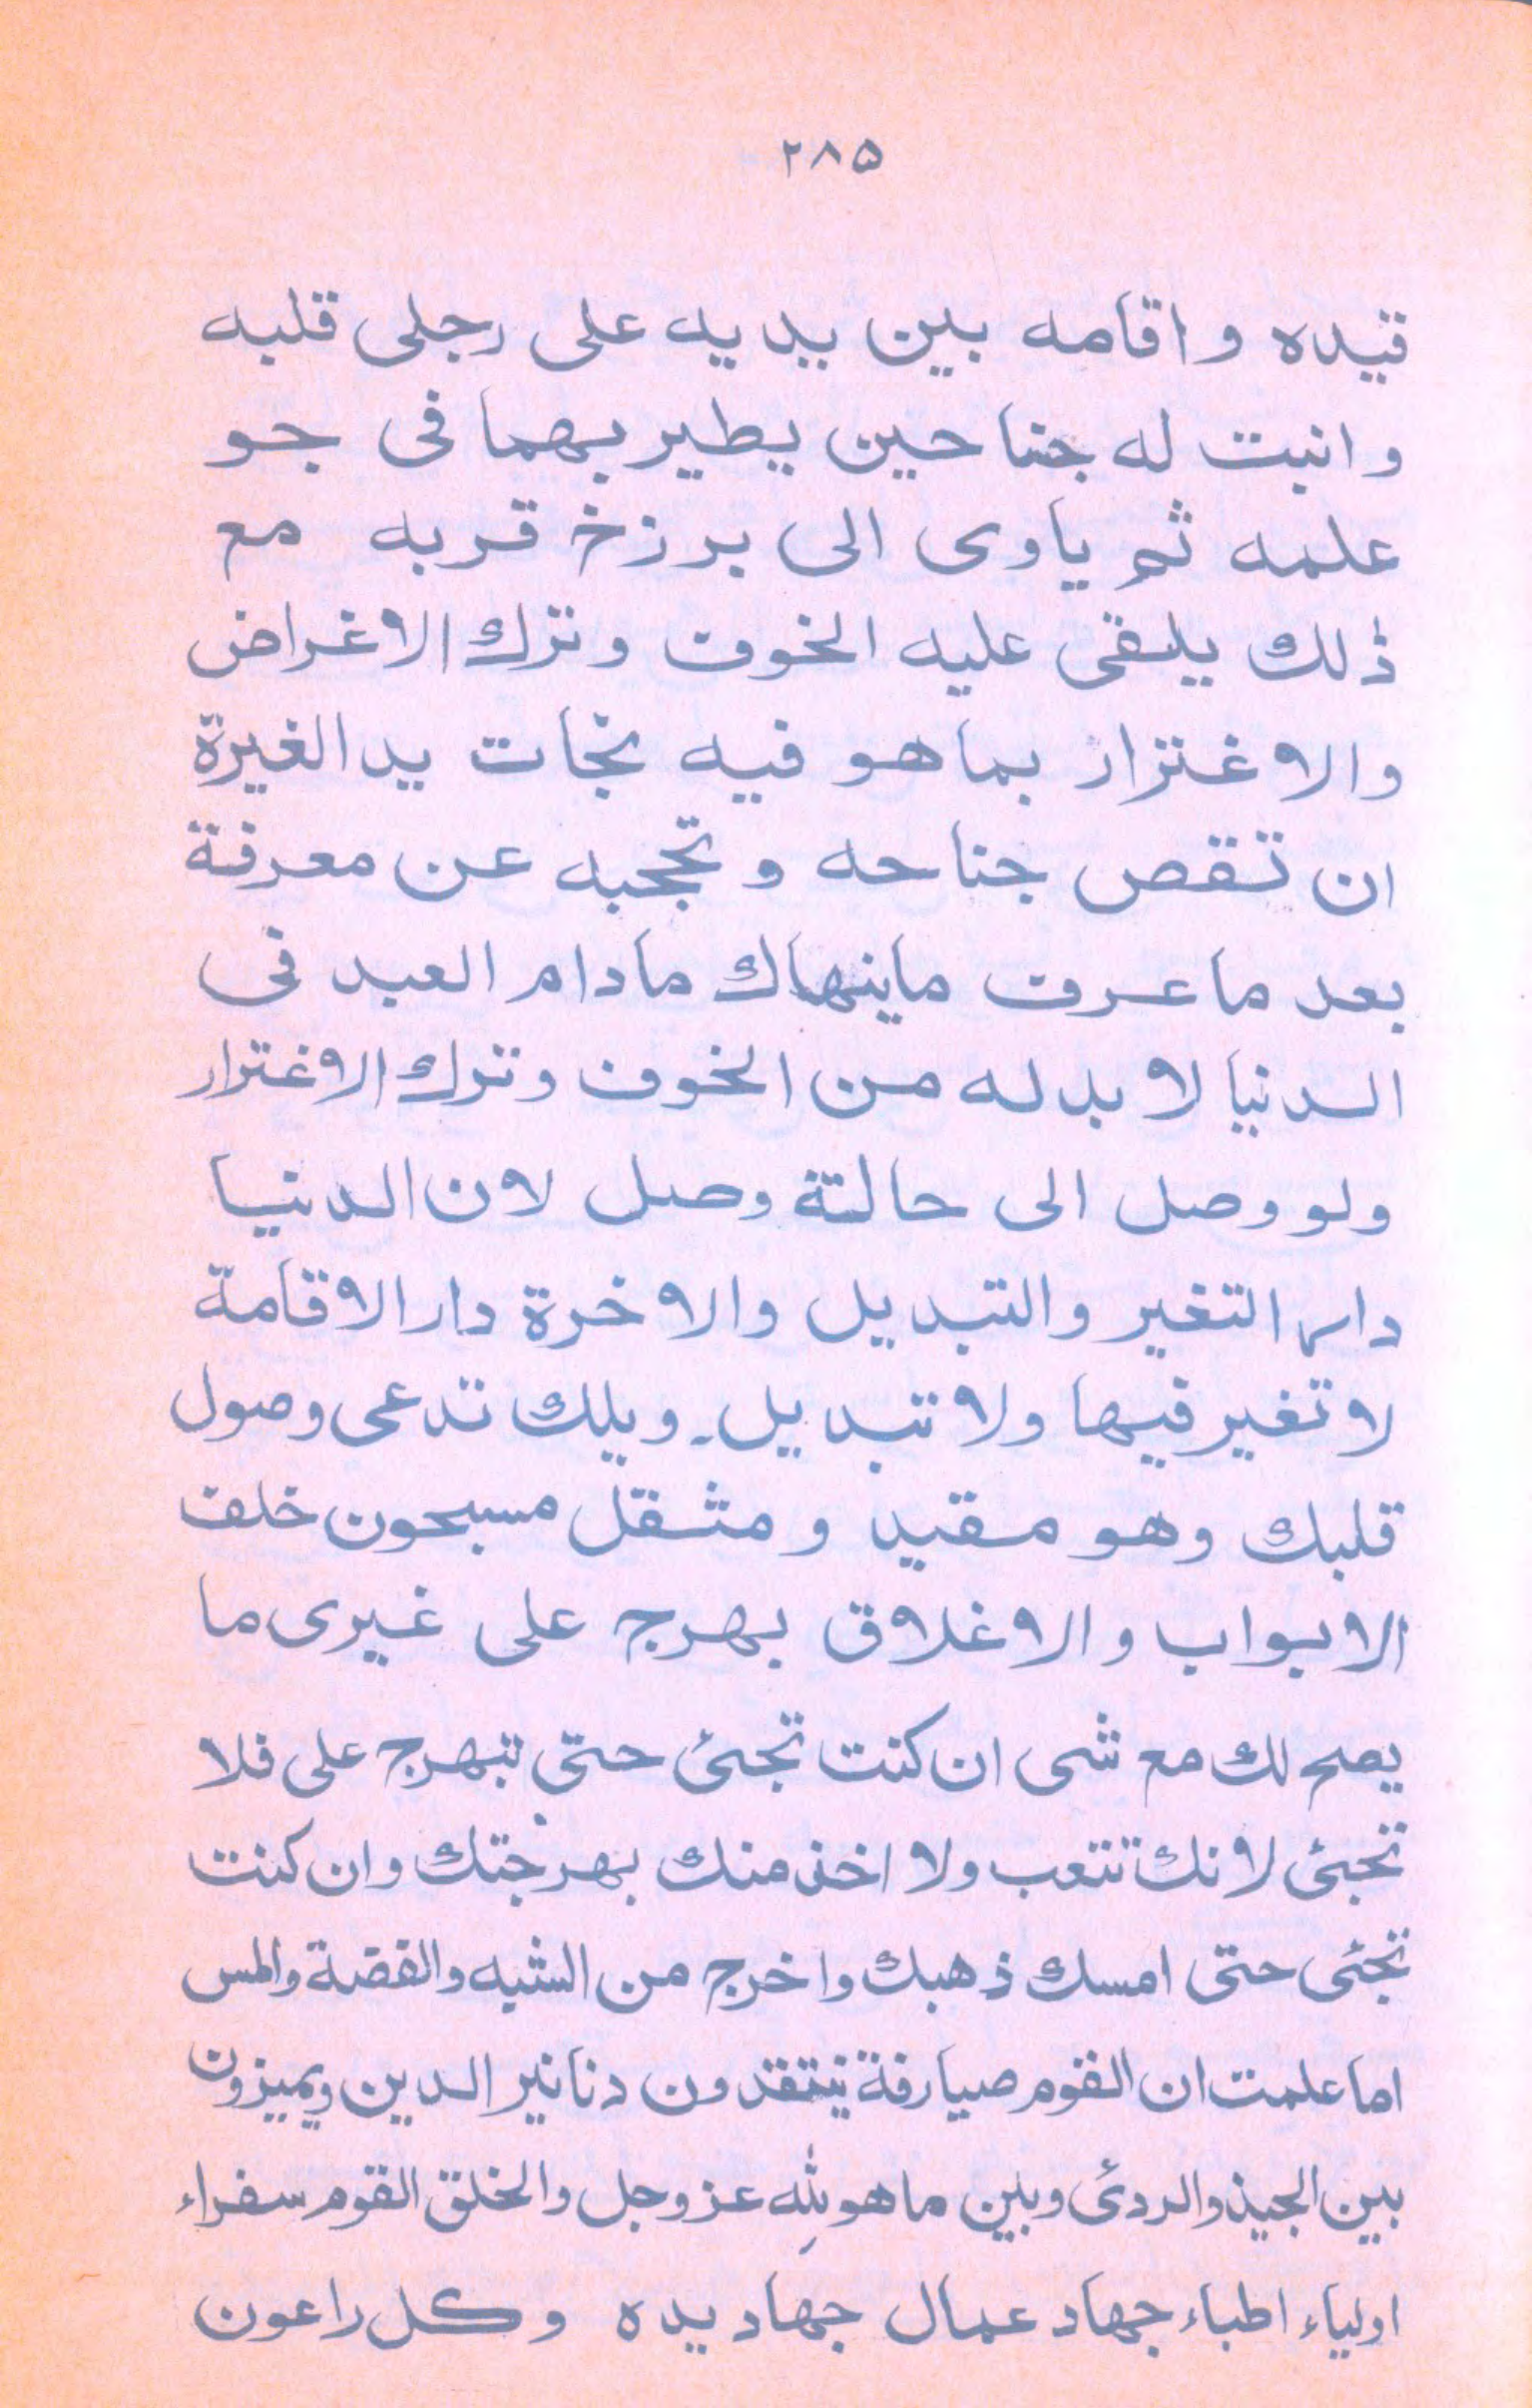 ۲۸۵
قيده واقامه بين يديه على رجلى قلبه
وانبت له جناحين يطير بهما فى جو
علمه ثم ياوى الى برزخ قربه مع
ذٰلك يلقى عليه الخوف وترك الاغراض
والاغترار بما هو فيه نخات يد الغيرة
ان تقص جناحه وتحجبه عن معرفة
بعد ما عرف ماينهاك مادام العبد فى
الدنيا لا بد له من الخوف وترك الاغترار
ولو وصل الى حالتة وصل لان الدنيا
دار التغير والتبديل والاخرة دار الاقامة
لا تغير فيها ولا تبديل۔ ويلك تدعى وصول
قلبك وهو مقيد ومثقل مسبحون خلف
الابواب والاغلاق بهرج على غيرى ما
يصح لك مع شى ان كنت تجئ حتى تبهرج على فلا
تجئ لانك تتعب ولا اخذ منك بهرجتك وان كنت
تجئى حتى امسك ذهبك واخرج من الشبه والفضة والمس
اما علمت ان القوم صيارفة ينتقدون دنانير الدين ويميزون
بين الجيذ والردئ وبين ما هو لِلّٰه عزوجل والخلق القوم سفراء
اولياء اطباء جهاد عمال جهاد يده وكل راعون